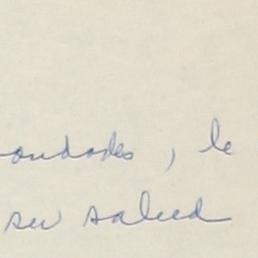 ondades, le
su salud